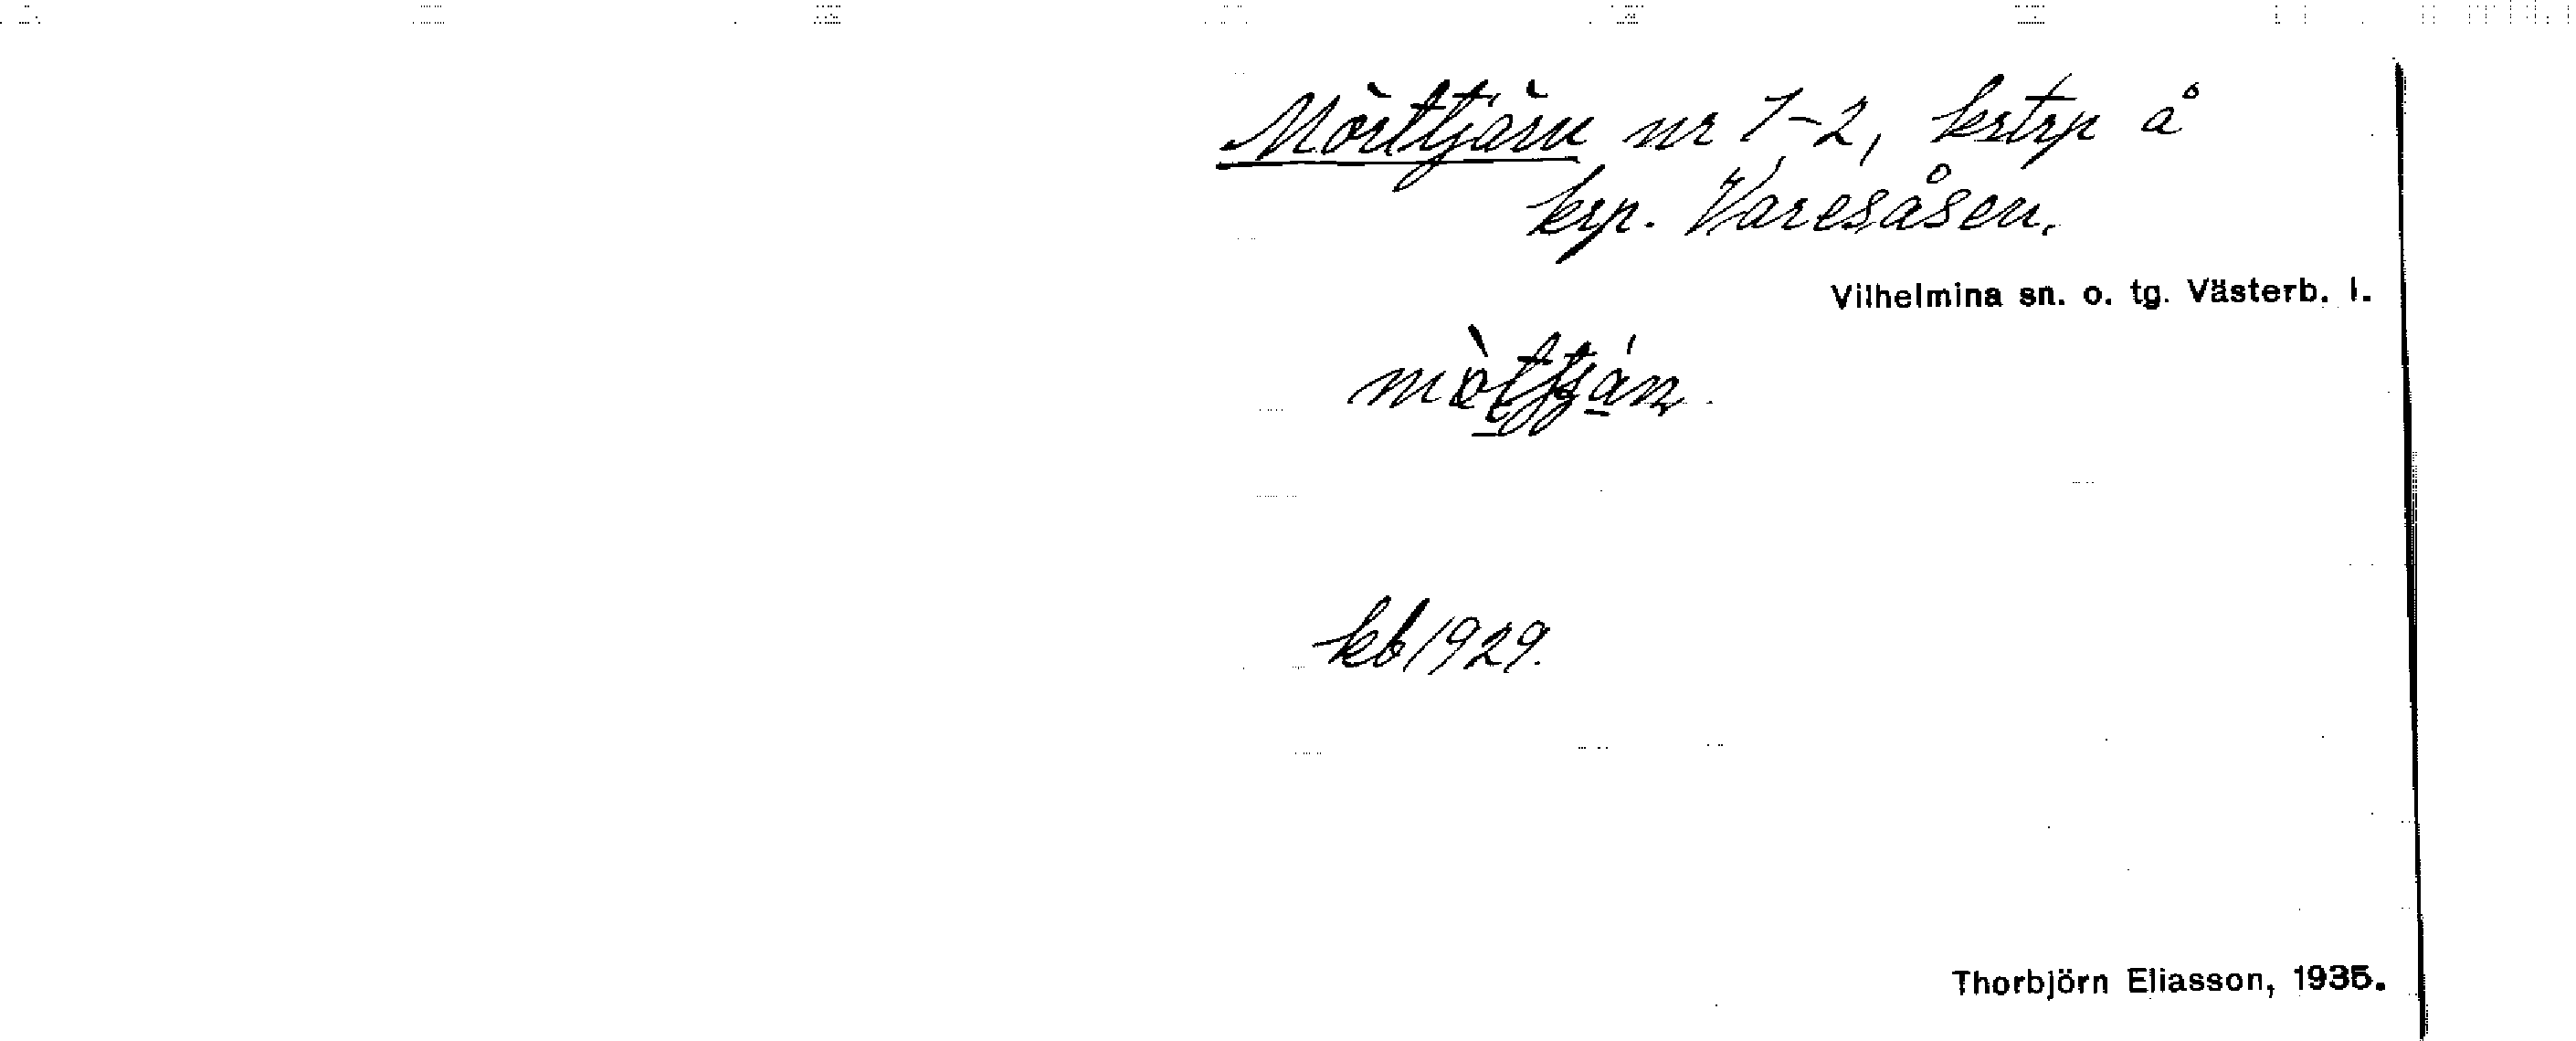 Mörttjärn nr 1-2, krstrp å
krp. Varesåsen.
Vilhelmina sn. o. tg. Västerb. l.
kb 1929.
Thorbjörn Eliasson, 1935.